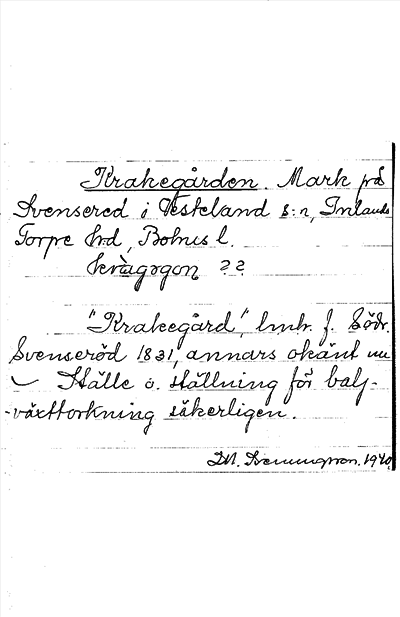 Krakegården. Mark på
Svensered i Västerland s:n, Inlands
Torpe hrd, Bohus l.
kràgogon ??
"Krakegård", lmh. f. Södr.
Svenseröd 1831, annars okänt nu
Ställe o. ställning för balj-
-växttorkning säkerligen.
1940